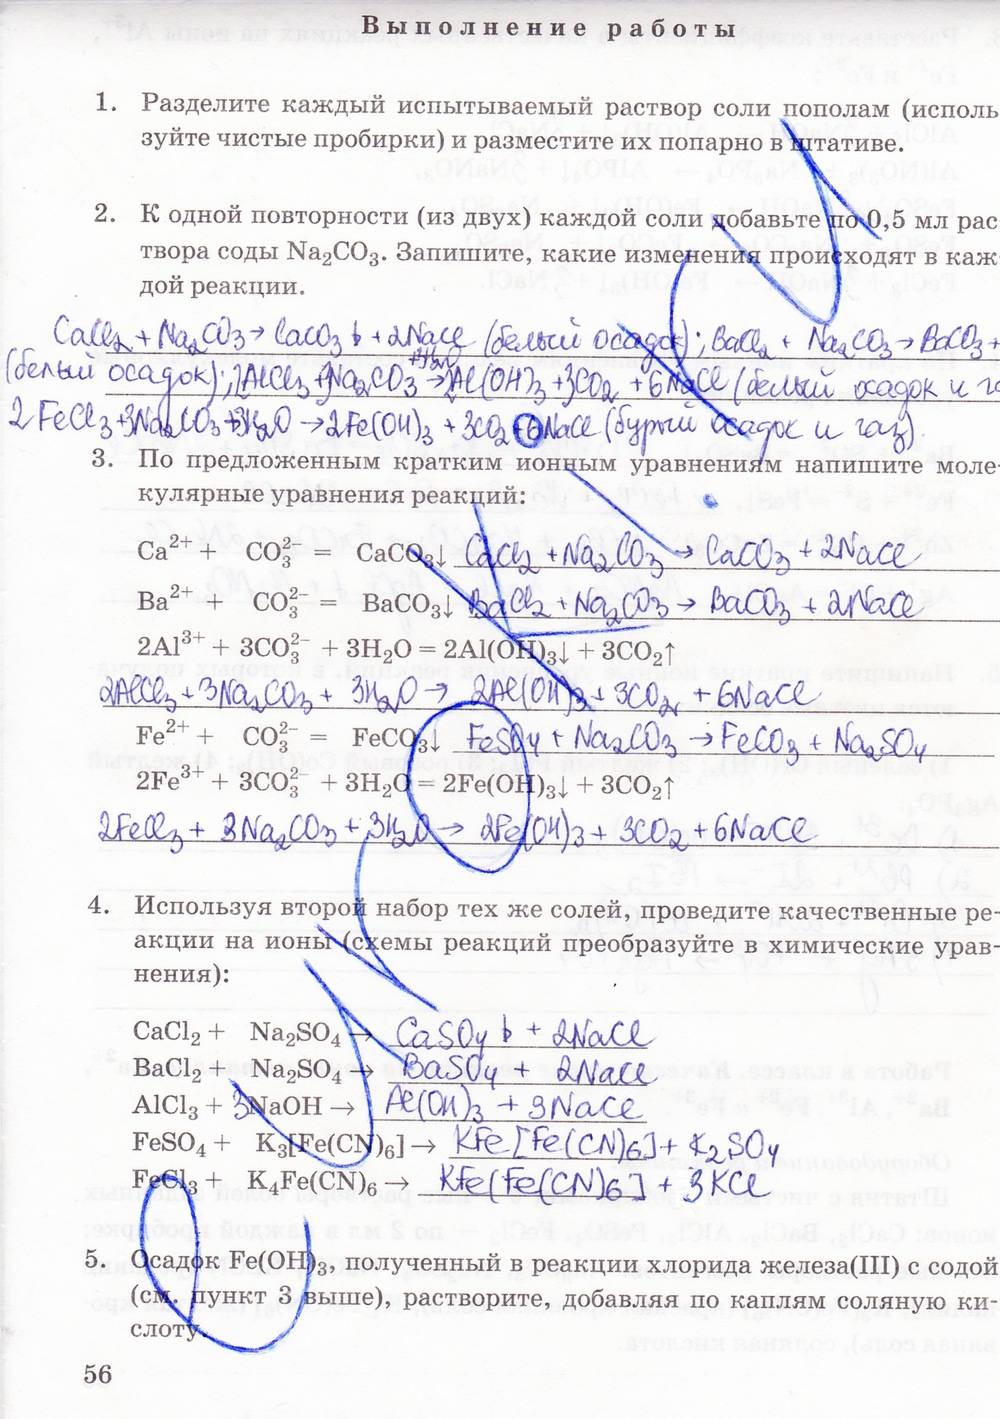 Выполнение работы
1. Разделите каждый испытываемый раствор соли пополам (исполь-
зуйте чистые пробирки) и разместите их попарно в штативе.
2. К одной повторности (из двух) каждой соли добавьте по 0,5 мл рас-
твора соды Na₂CO₃. Запишите, какие изменения происходят в каж-
дой реакции.
CaCl₂ + Na₂CO₃ → CaCO₃ ↓ + 2NaCl (белый осадок); BaCl₂ + Na₂CO₃ → BaCO₃ +
(белый осадок); 2AlCl₃ + 3Na₂CO₃ + 3H₂O → 2Al(OH)₃ + 3CO₂ + 6NaCl (белый осадок и га
2FeCl₃ + 3Na₂CO₃ + 3H₂O → 2Fe(OH)₃ + 3CO₂ + 6NaCl (бурый осадок и газ).
3. По предложенным кратким ионным уравнениям напишите моле-
кулярные уравнения реакций:
Ca²⁺ + CO₃²⁻ = CaCO₃↓ CaCl₂ + Na₂CO₃ → CaCO₃ + 2NaCl
Ba²⁺ + CO₃²⁻ = BaCO₃↓ BaCl₂ + Na₂CO₃ → BaCO₃ + 2NaCl
2Al³⁺ + 3CO₃²⁻ + 3H₂O = 2Al(OH)₃↓ + 3CO₂↑
2AlCl₃ + 3Na₂CO₃ + 3H₂O → 2Al(OH)₃ + 3CO₂ + 6NaCl
Fe²⁺ + CO₃²⁻ = FeCO₃↓ FeSO₄ + Na₂CO₃ → FeCO₃ + Na₂SO₄
2Fe³⁺ + 3CO₃²⁻ + 3H₂O = 2Fe(OH)₃↓ + 3CO₂↑
2FeCl₃ + 3Na₂CO₃ + 3H₂O → 2Fe(OH)₃ + 3CO₂ + 6NaCl
4. Используя второй набор тех же солей, проведите качественные ре-
акции на ионы (схемы реакций преобразуйте в химические урав-
нения):
CaCl₂ + Na₂SO₄ → CaSO₄ ↓ + 2NaCl
BaCl₂ + Na₂SO₄ → BaSO₄ + 2NaCl
AlCl₃ + 3NaOH → Al(OH)₃ + 3NaCl
FeSO₄ + K₃[Fe(CN)₆] → KFe[Fe(CN)₆] + K₂SO₄
FeCl₃ + K₄Fe(CN)₆ → KFe[Fe(CN)₆] + 3KCl
5. Осадок Fe(OH)₃, полученный в реакции хлорида железа(III) с содой
(см. пункт 3 выше), растворите, добавляя по каплям соляную ки-
слоту.
56